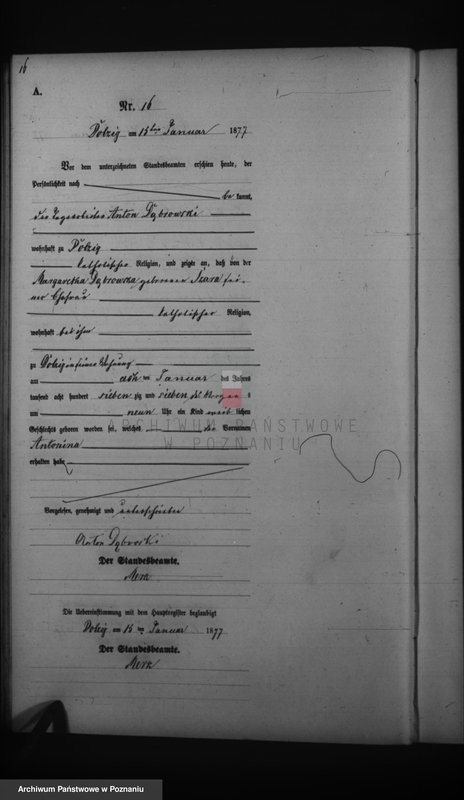 16
A.
Nr. 16
am 15ten Januar 1877
Vor dem unterzeichneten Standesbeamten erschien heute, der
Persönlichkeit nach
be kannt,
Anton Dąbrowski
wohnhaft zu
katholischer Religion, und zeigte an, daß von der
Margaretha Dąbrowska geborenen Szara sei-
ner Ehefrau
katholischer Religion,
wohnhaft bei ihm
zu in seiner Wohnung
am Januar des Jahres
tausend acht hundert sieben zig und sieben
um neun Uhr ein Kind weib lichen
Geschlechts geboren worden sei, welches den Vornamen
Antonina
erhalten habe
ARCHIWUM PAŃSTWOWE
W POZNANIU
Vorgelesen, genehmigt und unterschrieben
Anton Dąbrowski
Der Standesbeamte.
Die Uebereinstimmung mit dem Hauptregister beglaubigt
am 15ten Januar 1877
Der Standesbeamte.
Archiwum Państwowe w Poznaniu